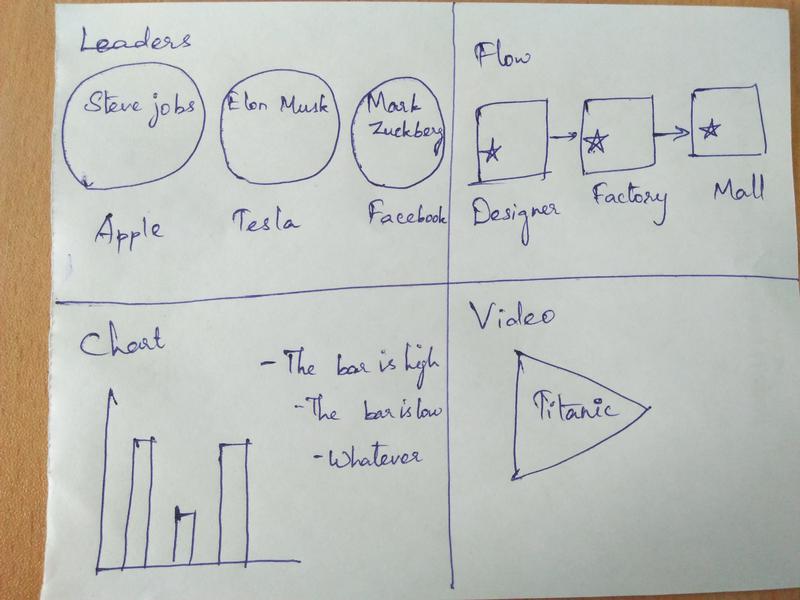 Leaders
Steve jobs
Elon Musk
Mark
Zuckberg
Apple
Tesla
Facebook
Flow
Designer
Factory
Mall
Chart
- The bar is high
- The bar is low
- Whatever
Video
Titanic